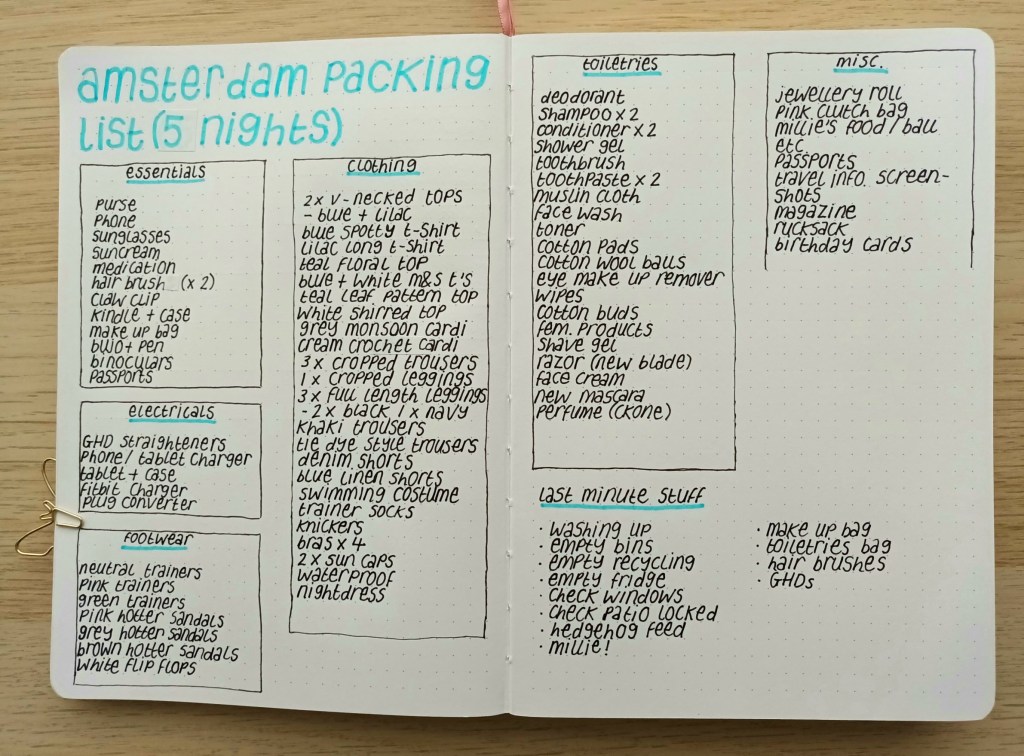 amsterdam packing
list (5 nights)
essentials
purse
phone
sunglasses
suncream
medication
hair brush (x 2)
claw clip
kindle + case
make up bag
bujo + pen
binoculars
passports
electricals
GHD straighteners
phone/ tablet charger
tablet + case
fitbit charger
plug converter
footwear
neutral trainers
pink trainers
green trainers
pink hotter sandals
grey hotter sandals
brown hotter sandals
white flip flops
clothing
2 x v-necked tops
- blue + lilac
blue spotty t-shirt
lilac long t-shirt
teal floral top
blue + white m&s t's
teal leaf pattern top
white shirred top
grey monsoon cardi
cream crochet cardi
3 x cropped trousers
1 x cropped leggings
3 x full length leggings
- 2 x black 1 x navy
khaki trousers
tie dye style trousers
denim shorts
blue linen shorts
swimming costume
trainer socks
knickers
bras x 4
2 x sun caps
waterproof
nightdress
toiletries
deodorant
shampoo x 2
conditioner x 2
shower gel
toothbrush
toothpaste x 2
muslin cloth
face wash
toner
cotton pads
cotton wool balls
eye make up remover
wipes
cotton buds
fem. products
shave gel
razor (new blade)
face cream
new mascara
perfume (ckone)
misc.
jewellery roll
pink clutch bag
millie's food / ball
etc
passports
travel info. screen-
shots
magazine
rucksack
birthday cards
last minute stuff
· washing up
· empty bins
· empty recycling
· empty fridge
· check windows
· check patio locked
· hedgehog feed
· millie!
· make up bag
· toiletries bag
· hair brushes
· GHDs